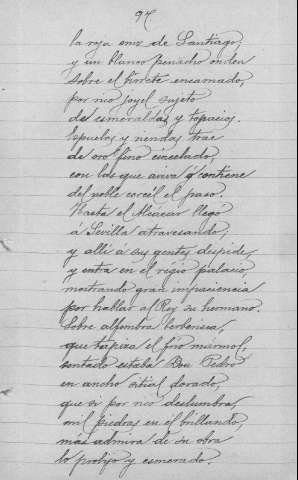 97
la roja cruz de Santiago,
y un blanco penacho ondea
sobre el birrete encarnado,
por rico joyel sujeto
de esmeraldas y topacios.
Espuelas y riendas trae
de oro fino cincelado,
con las que aviva y contiene
del noble corcél el paso.
Hasta el Alcázar llegó
á Sevilla atravesando,
y allí á sus gentes despide,
y entra en el regio palacio,
mostrando gran impaciencia
por hablar al Rey su hermano.
Sobre alfombra berberisca,
que tapiza el frio mármol,
sentado estaba Don Pedro
en ancho sitial dorado,
que si por rico deslumbra,
mil piedras en él brillando,
mas admira de su obra
lo prolijo y esmerado.